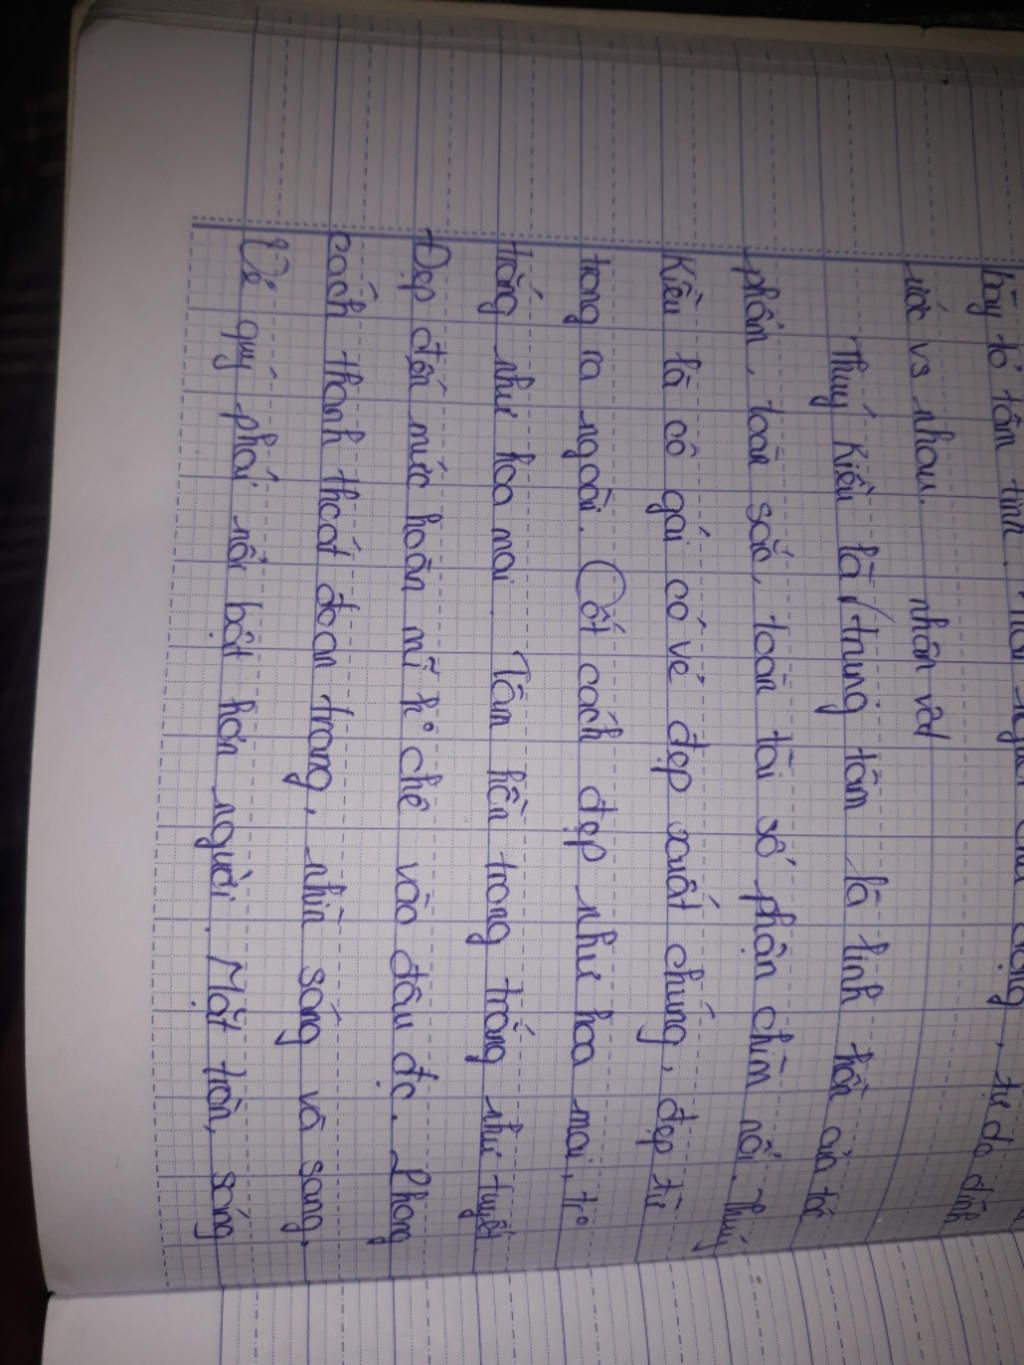 bày tỏ tâm tình, tự do đính
ước vs nhau.
nhân vật
Thuý Kiều là trung tâm là linh hồn của tác
phẩm, toàn sắc, toàn tài số phận chìm nổi. Thuý
Kiều là cô gái có vẻ đẹp xuất chúng, đẹp từ
trong ra ngoài. Cốt cách đẹp như hoa mai, tr
trắng như hoa mai. Tâm hồn trong trắng như tuyết
Đẹp đến mức hoàn mĩ k° chê vào đâu đc. Phong
cách thanh thoát đoan trang, nhìn sáng và sang.
Vẻ quý phái nổi bật hơn người. Mặt tròn, sáng